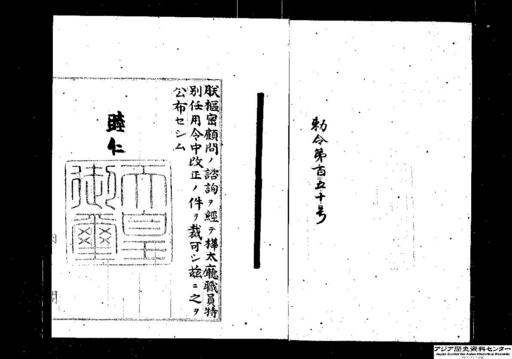 勅令第百五十号
朕樞密顧問ノ諮詢ヲ經テ樺太廳職員特
別任用令中改正ノ件ヲ裁可シ玆ニ之ヲ
公布セシム
睦仁
天皇
御璽
アジア歴史資料センター
Japan Center for Asian Historical Records